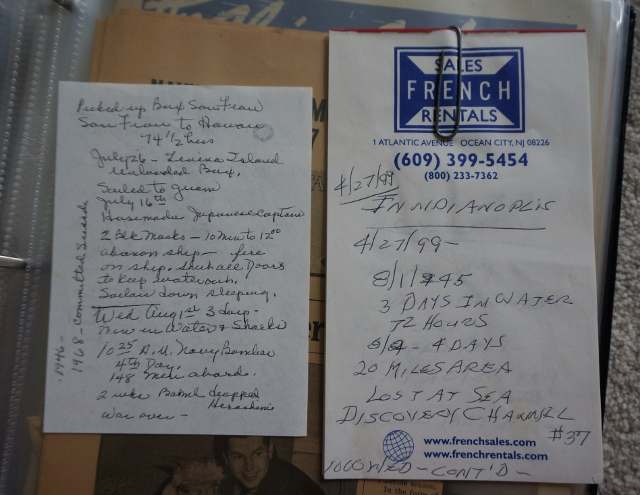 Picked up Box San Fran
San Fran to Hawaii
74 1/2 hrs
July 26 - Tenina Island
unloaded Box.
Sailed to guam
July 16th
Hasimoda Japanese Captain
2 Blk Masks - 10 Min to 12 00
abaron ship - fire
on ship. Shut all Doors
to keep water out.
Sailor down sleeping.
Wed Aug 1st 3 days -
Men in Water & Sharks
10 25 A.M. Navy Bomber
4th Day.
148 Men aboard.
2 wks Bomb dropped
Heroshemi
War over -
1946 -
1968 - Committed Suicide
SALES
FRENCH
RENTALS
1 ATLANTIC AVENUE OCEAN CITY, NJ 08226
(609) 399-5454
(800) 233-7362
4/27/99
INNDIANOPLIS
4/27/99-
8/1/45
3 DAYS IN WATER
72 HOURS
4 DAYS
20 MILES AREA
LOST AT SEA
DISCOVERY CHANNEL
#37
www.frenchsales.com
www.frenchrentals.com
CONT'D -